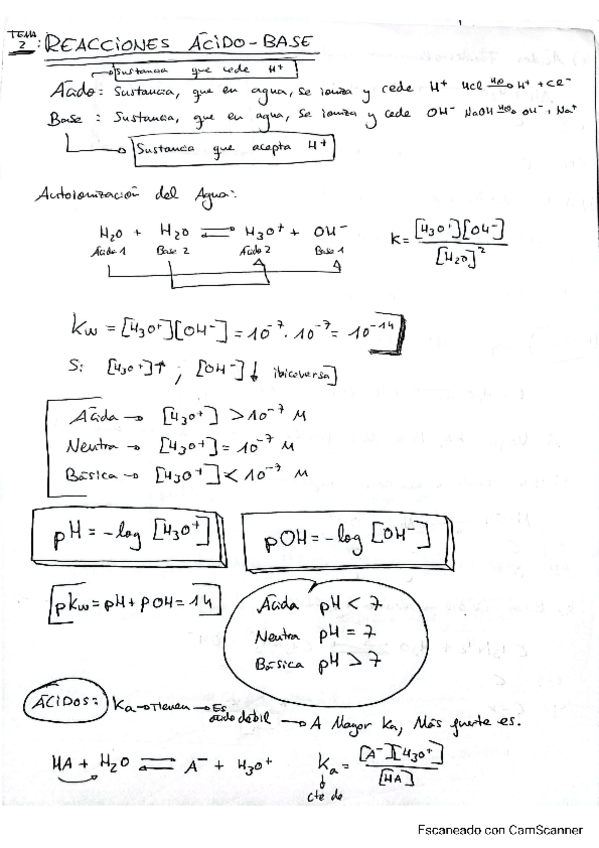 TEMA 2: REACCIONES ÁCIDO-BASE
Sustancia que cede H⁺
Ácido: Sustancia, que en agua, se ioniza y cede H⁺ HCl →(H₂O) H⁺ + Cl⁻
Base : Sustancia, que en agua, se ioniza y cede OH⁻ NaOH →(H₂O) OH⁻ + Na⁺
Sustancia que acepta H⁺
Autoionización del Agua:
H₂O + H₂O ⇌ H₃O⁺ + OH⁻
Ácido 1 Base 2 Ácido 2 Base 1
K = [H₃O⁺][OH⁻] / [H₂O]²
Kw = [H₃O⁺][OH⁻] = 10⁻⁷ · 10⁻⁷ = 10⁻¹⁴
Si [H₃O⁺]↑ ; [OH⁻]↓ ¡bicoversa]
Ácida → [H₃O⁺] > 10⁻⁷ M
Neutra → [H₃O⁺] = 10⁻⁷ M
Básica → [H₃O⁺] < 10⁻⁷ M
pH = -log [H₃O⁺]
pOH = -log [OH⁻]
pKw = pH + pOH = 14
Ácida pH < 7
Neutra pH = 7
Básica pH > 7
ÁCIDOS: Ka → Tienen → Es ácido débil → A Mayor Ka, Más fuerte es.
HA + H₂O ⇌ A⁻ + H₃O⁺
Ka = [A⁻][H₃O⁺] / [HA]
cte de
Escaneado con CamScanner